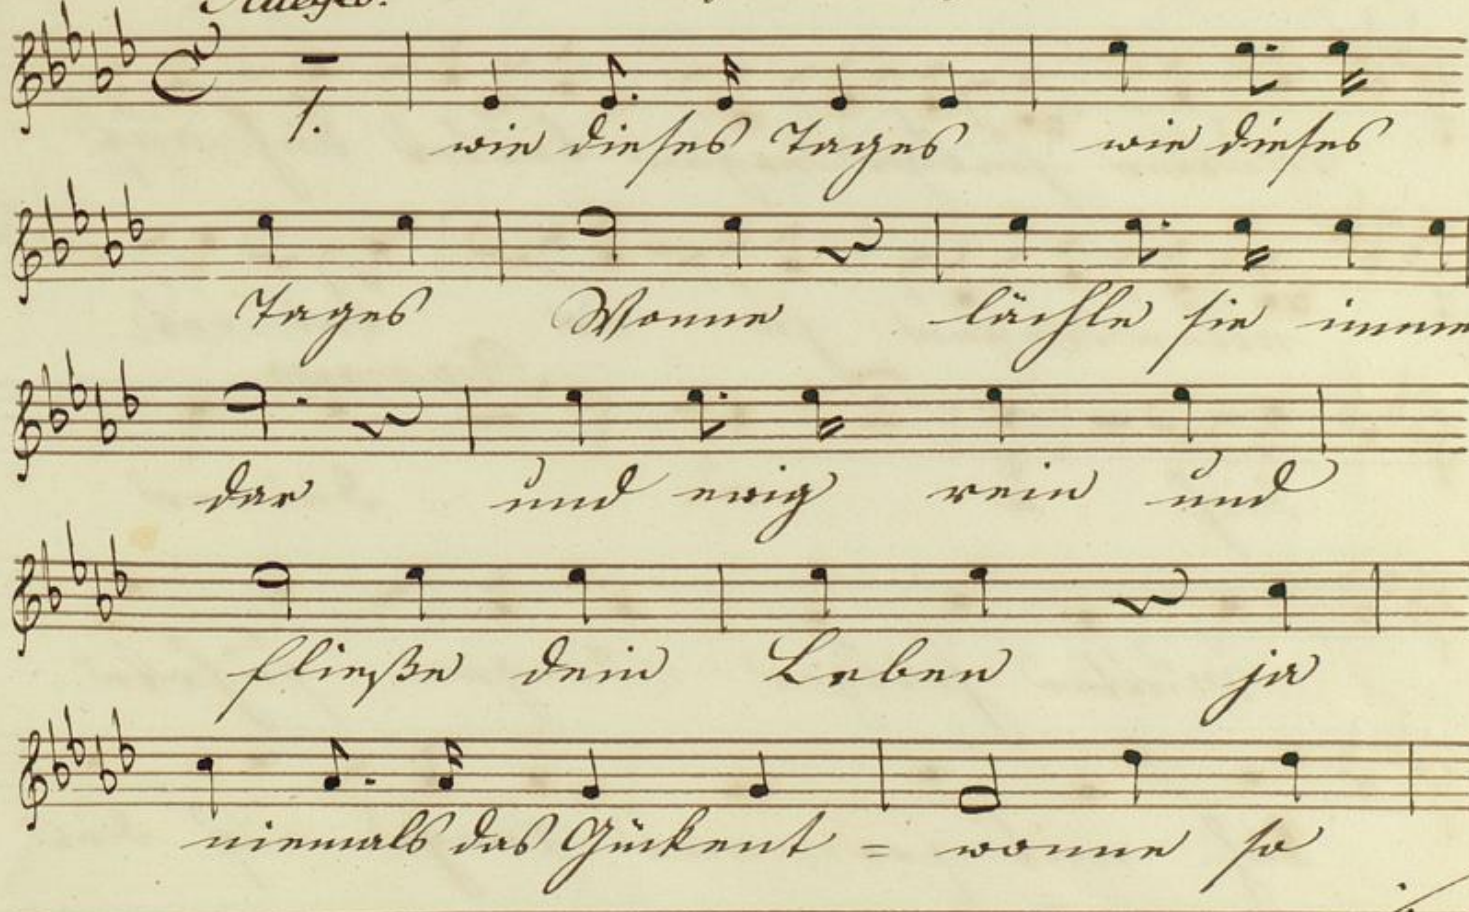 Allegro.
1.
wie dieses Tages wie dieses
Tages Wonne lächle sie imme
dar und ewig rein und
fließe dein Leben ja
niemals das = wonne so